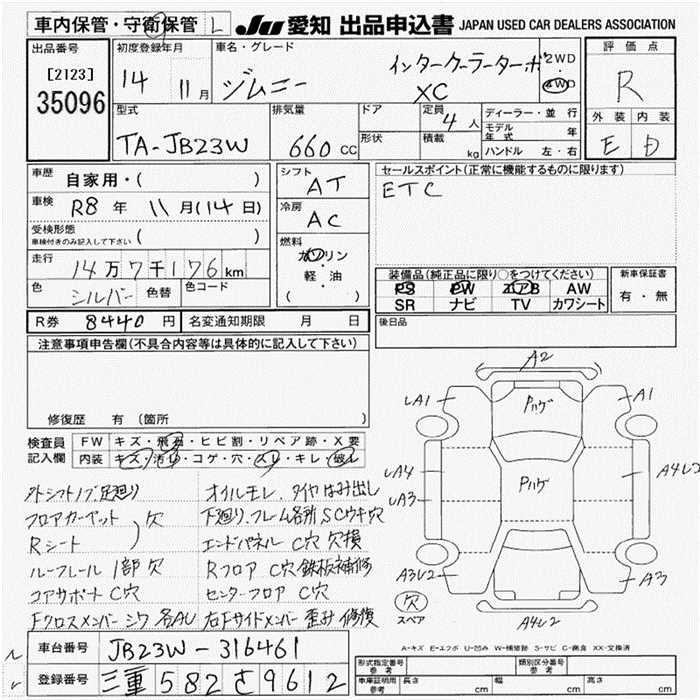 車内保管・守衛保管 L
JU 愛知 出品申込書 JAPAN USED CAR DEALERS ASSOCIATION
出品番号
[2123]
35096
初度登録年月
14 11月
車名・グレード
ジムニー
インタークーラーターボ
XC
2WD
・
4WD
評価点
R
外装 内装
E D
型式
TA-JB23W
排気量
660 CC
ドア
形状
定員
4人
積載
kg
ディーラー・並行
モデル年式 年
ハンドル 左・右
車歴 自家用・( )
車検 R8年 11月(14日)
受検形態
車検付きのみ記入して下さい ( )
走行 14万7千176km
色 シルバー 色替 色コード
シフト
AT
冷房
AC
燃料
ガソリン
・
軽・油
( )
セールスポイント(正常に機能するものに限ります)
ETC
装備品(純正品に限り○をつけてください)
PS PW エアB AW
SR ナビ TV カワシート
新車保証書
有・無
R券 8440円 名変通知期限 月 日
後日品
注意事項申告欄(不具合内容等は具体的に記入して下さい)
修復歴 有 (箇所 )
検査員記入欄
FW キズ・飛石・ヒビ割・リペア跡・X要
内装 キズ・汚れ・コゲ・穴・スレ・キレ・破れ
外シフトノブ 足廻り オイルモレ、タイヤはみ出し
フロアカーペット 欠 下廻り、フレーム各所 SCウキ穴
Rシート エンドパネル C穴 欠損
ルーフレール 1部欠 Rフロア C穴 鉄板補修
コアサポート C穴 センターフロア C穴
Fクロスメンバー シワ 各AU 右Fサイドメンバー 歪み 修復
A2
LA1
Pハゲ
A1
LA4
LA3
Pハゲ
A4レ2
A3レ2
A3
欠
スペア
A4レ2
A-キズ E-エクボ U-凹み W-補修跡 S-サビ C-腐食 XX-交換済
車台番号 JB23W-316461
登録番号 三重 582 さ 9612
形式指定番号 参考
類別区分番号 参考
車庫証明用参考 長さ cm 幅 cm 高さ cm